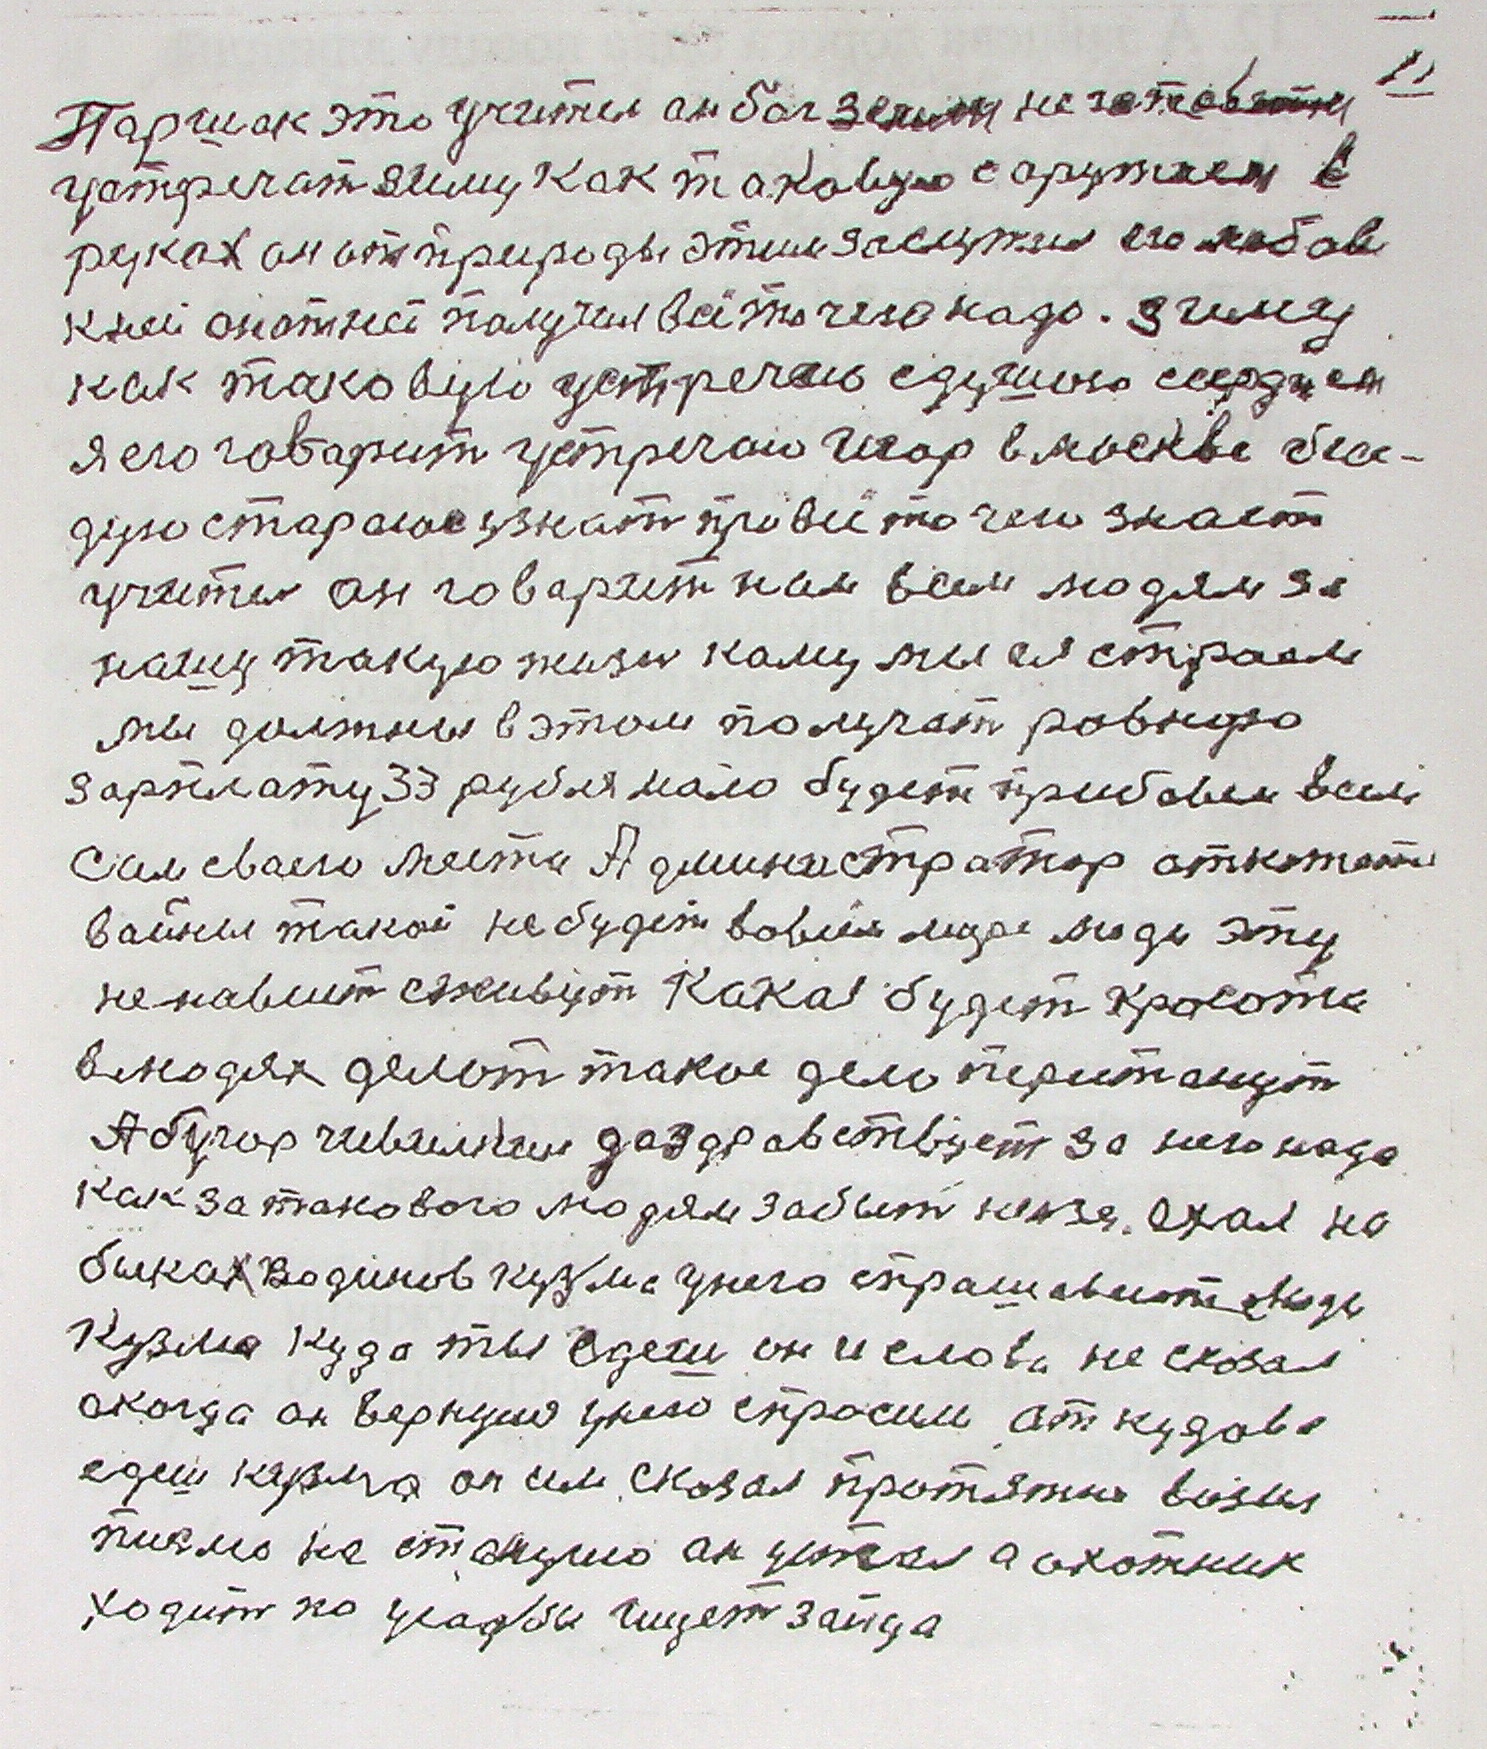 11
Паршак это учител он бог земли не готовится
устречат зиму как таковую с оружием в
руках он от природы этим заслужил его любов
к ней он от ней получил всё то чего надо. зиму
как таковую устречаю с душою сердцем
я его говарит устречаю Игор в москве бси-
дую стараюс узнат про всё то чего знает
учител он говарит нам всем людям за
нашу такую жизн каму мы ея строем
мы должны в этом получат ровную
зарплату 33 рубля мало будет прибавем всем
Сам сваего места Администратор откотает
вайны такой не будет вовсём мире люди эту
ненавист сживут Какая будет красота
в людях делат такое дело перистанут
А бугор чивилкин да здравствует за него надо
как за такового людям забыт незя. ехал на
быках Водинов кузма у него спрашавают люди
Кузма куда ты едеш он и слова не сказал
а когда он вернулся у него спросили откудава
едеш кузма он им сказал протятки возил
писмо на станцию он устал а охотник
ходит по усадби ищет зайца